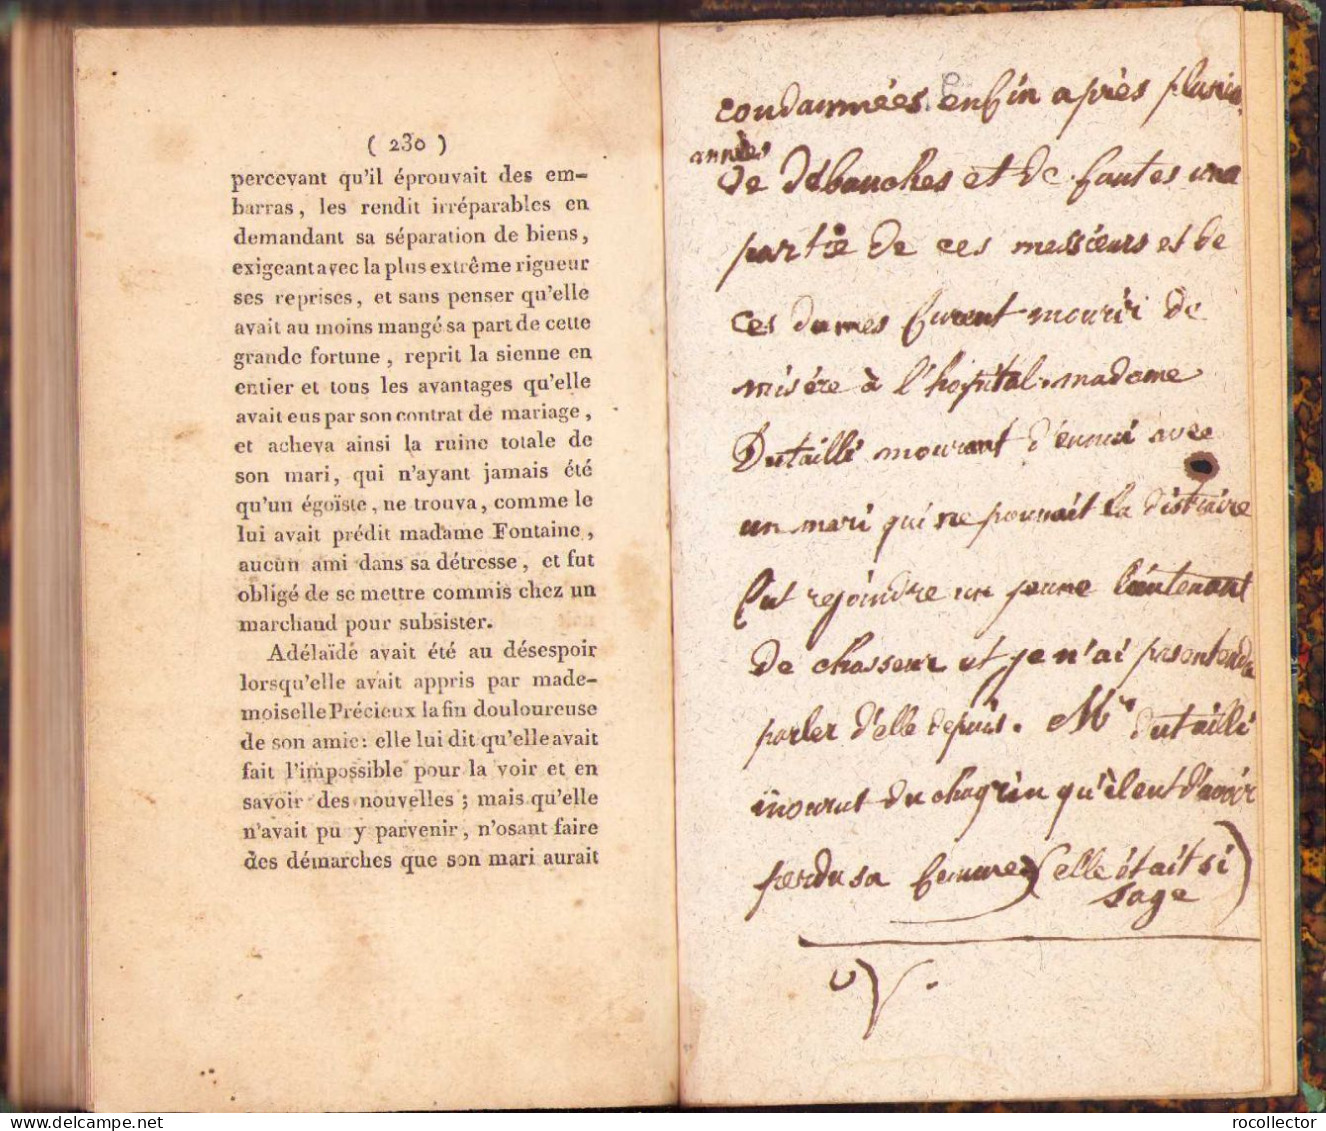 ( 230 )
percevant qu'il éprouvait des em-
barras, les rendit irréparables en
demandant sa séparation de biens,
exigeant avec la plus extrême rigueur
ses reprises, et sans penser qu'elle
avait au moins mangé sa part de cette
grande fortune, reprit la sienne en
entier et tous les avantages qu'elle
avait eus par son contrat de mariage,
et acheva ainsi la ruine totale de
son mari, qui n'ayant jamais été
qu'un égoïste, ne trouva, comme le
lui avait prédit madame Fontaine,
aucun ami dans sa détresse, et fut
obligé de se mettre commis chez un
marchand pour subsister.
Adélaïde avait été au désespoir
lorsqu'elle avait appris par made-
moiselle Précieux la fin douloureuse
de son amie: elle lui dit qu'elle avait
fait l'impossible pour la voir et en
savoir des nouvelles; mais qu'elle
n'avait pu y parvenir, n'osant faire
des démarches que son mari aurait
condamnées. enfin après plusieu
années
de débauches et de fautes une
partie de ces messieurs et de
ces dames furent mourir de
misére à l'hopital. madame
Dutaillé mourant d'ennui avec
un mari qui ne pouvait la distraire
fut rejoindre un jeune lieutenant
de chasseur et je n'ai pas entendu
parler d'elle depuis. Mr dutailli
mourut du chagrin qu'il eut d'avoir
perdu sa femme (elle était si
sage)
rocollector